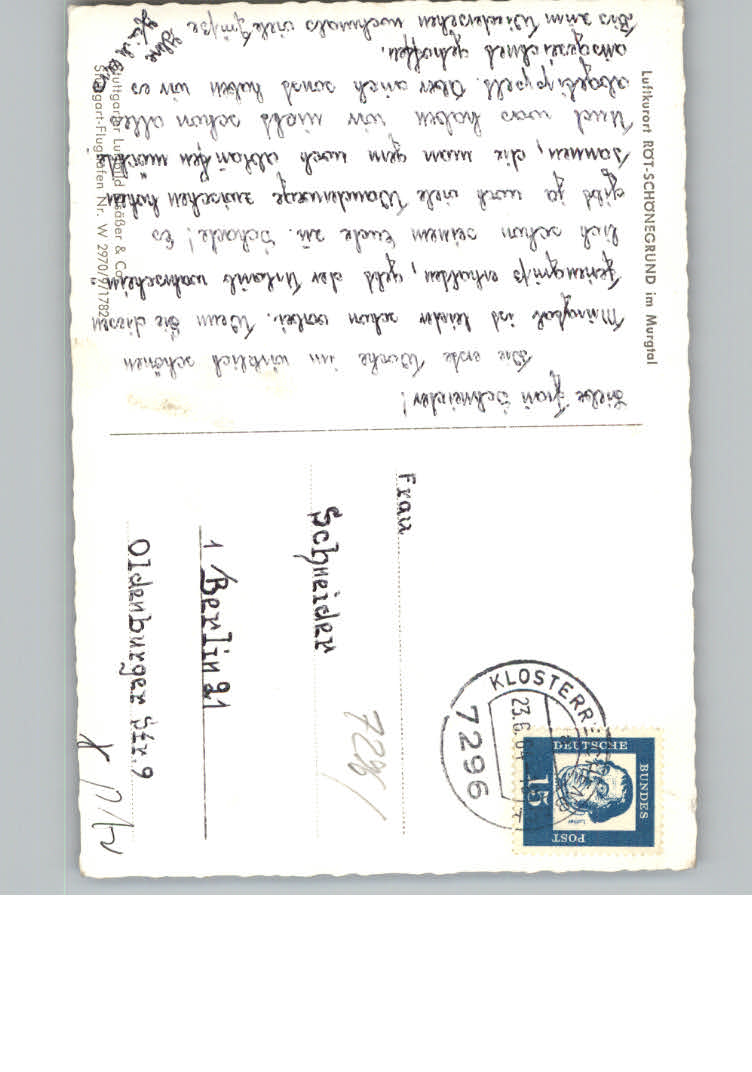 Luftkurort ROT-SCHÖNEGRUND im Murgtal
Liebe Frau Schneider!
Die erste Woche im wirklich schönen
Murgtal ist leider schon vorbei. Wenn Sie diesen
Feriengruß erhalten, geht der Urlaub wahrschein-
lich schon seinem Ende zu. Schade! Es
gibt ja noch viele Wanderwege zwischen hohen
Tannen, die man gern noch ablaufen würde.
Und was haben wir nicht schon alles
abgeklappert. Aber auch sonst haben wir es
ausgezeichnet getroffen.
Bis zum Wiedersehen nochmals viele Grüße
Ihre
Stuttgarter Luftbild Elsäßer & Co.
Stuttgart-Flughafen Nr. W 2970/9/1782
Frau
Schneider
1 Berlin 21
Oldenburger Str. 9
7296/
KLOSTERRE
23.6.64
7296
DEUTSCHE
BUNDES
POST
15
Luther